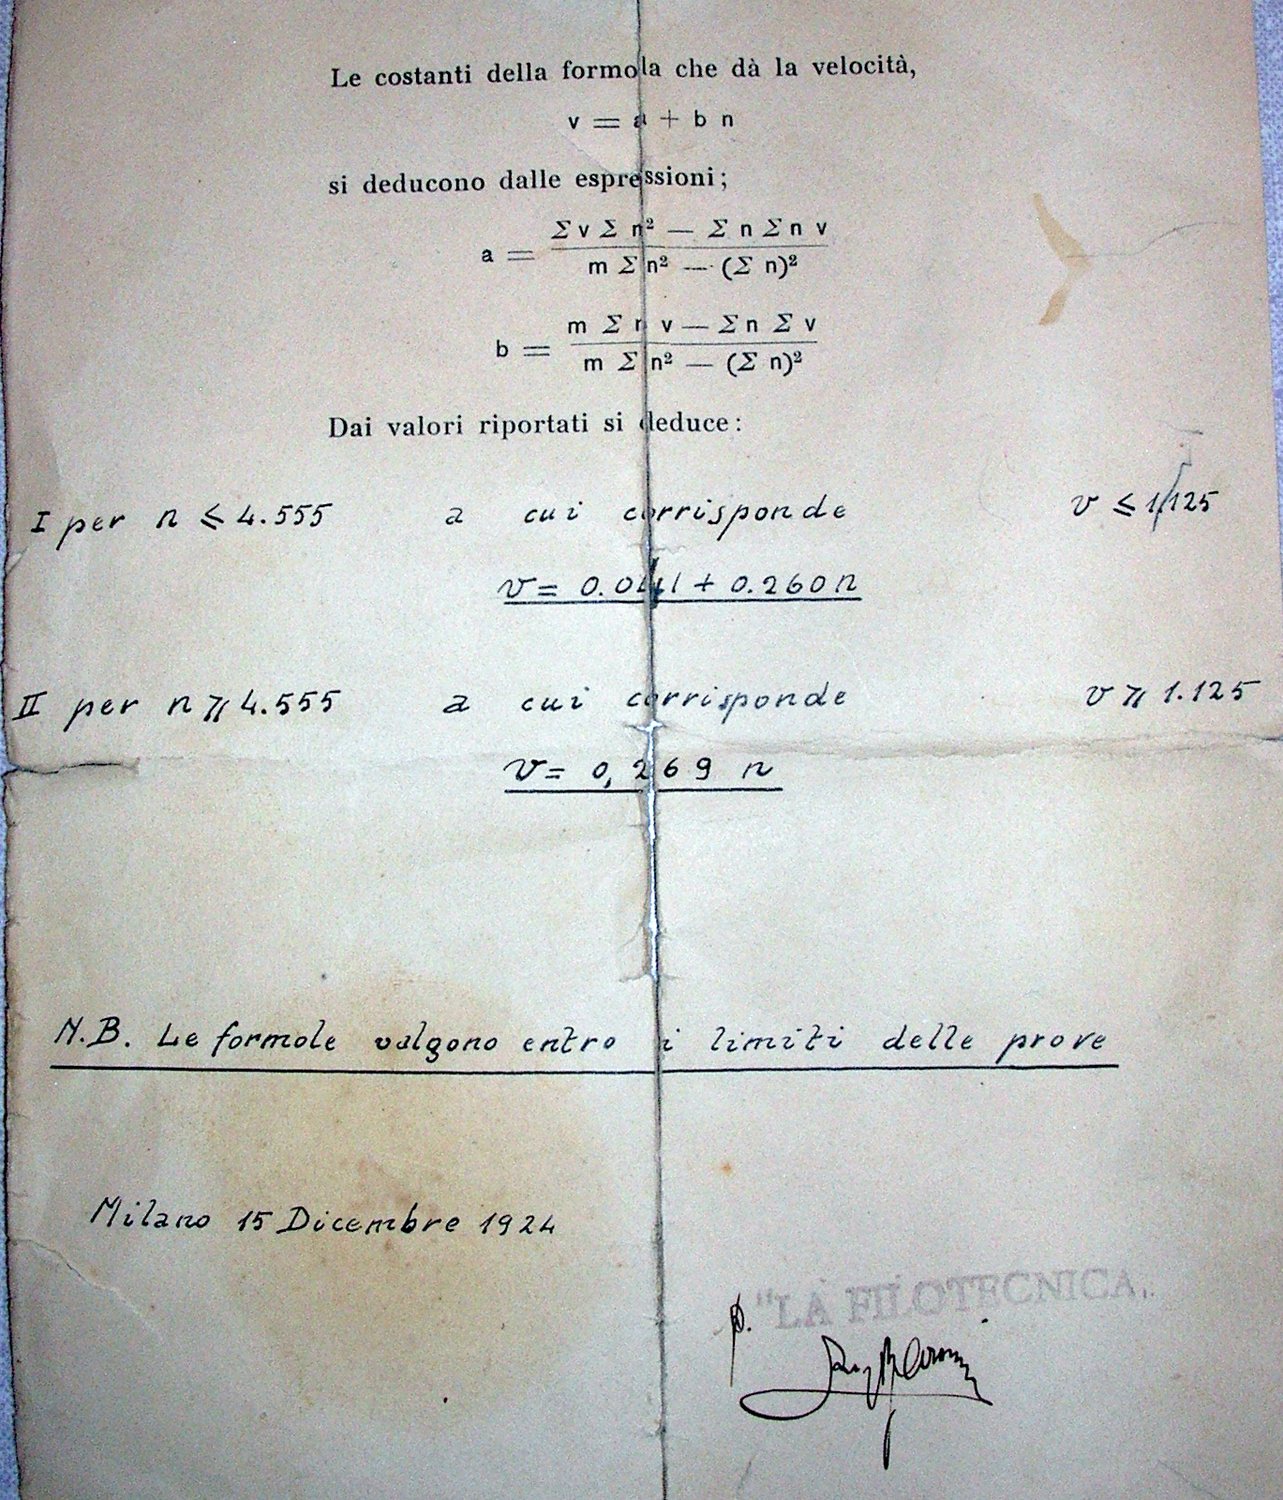 Le costanti della formola che dà la velocità,
v = a + b n
si deducono dalle espressioni;
a = (Σ v Σ n² — Σ n Σ n v) / (m Σ n² — (Σ n)²)
b = (m Σ n v — Σ n Σ v) / (m Σ n² — (Σ n)²)
Dai valori riportati si deduce:
I per n ≤ 4.555 a cui corrisponde v ≤ 1.125
v = 0.041 + 0.260 n
II per n ≥ 4.555 a cui corrisponde v ≥ 1.125
v = 0,269 n
N.B. Le formole valgono entro i limiti delle prove
Milano 15 Dicembre 1924
p. "LA FILOTECNICA"